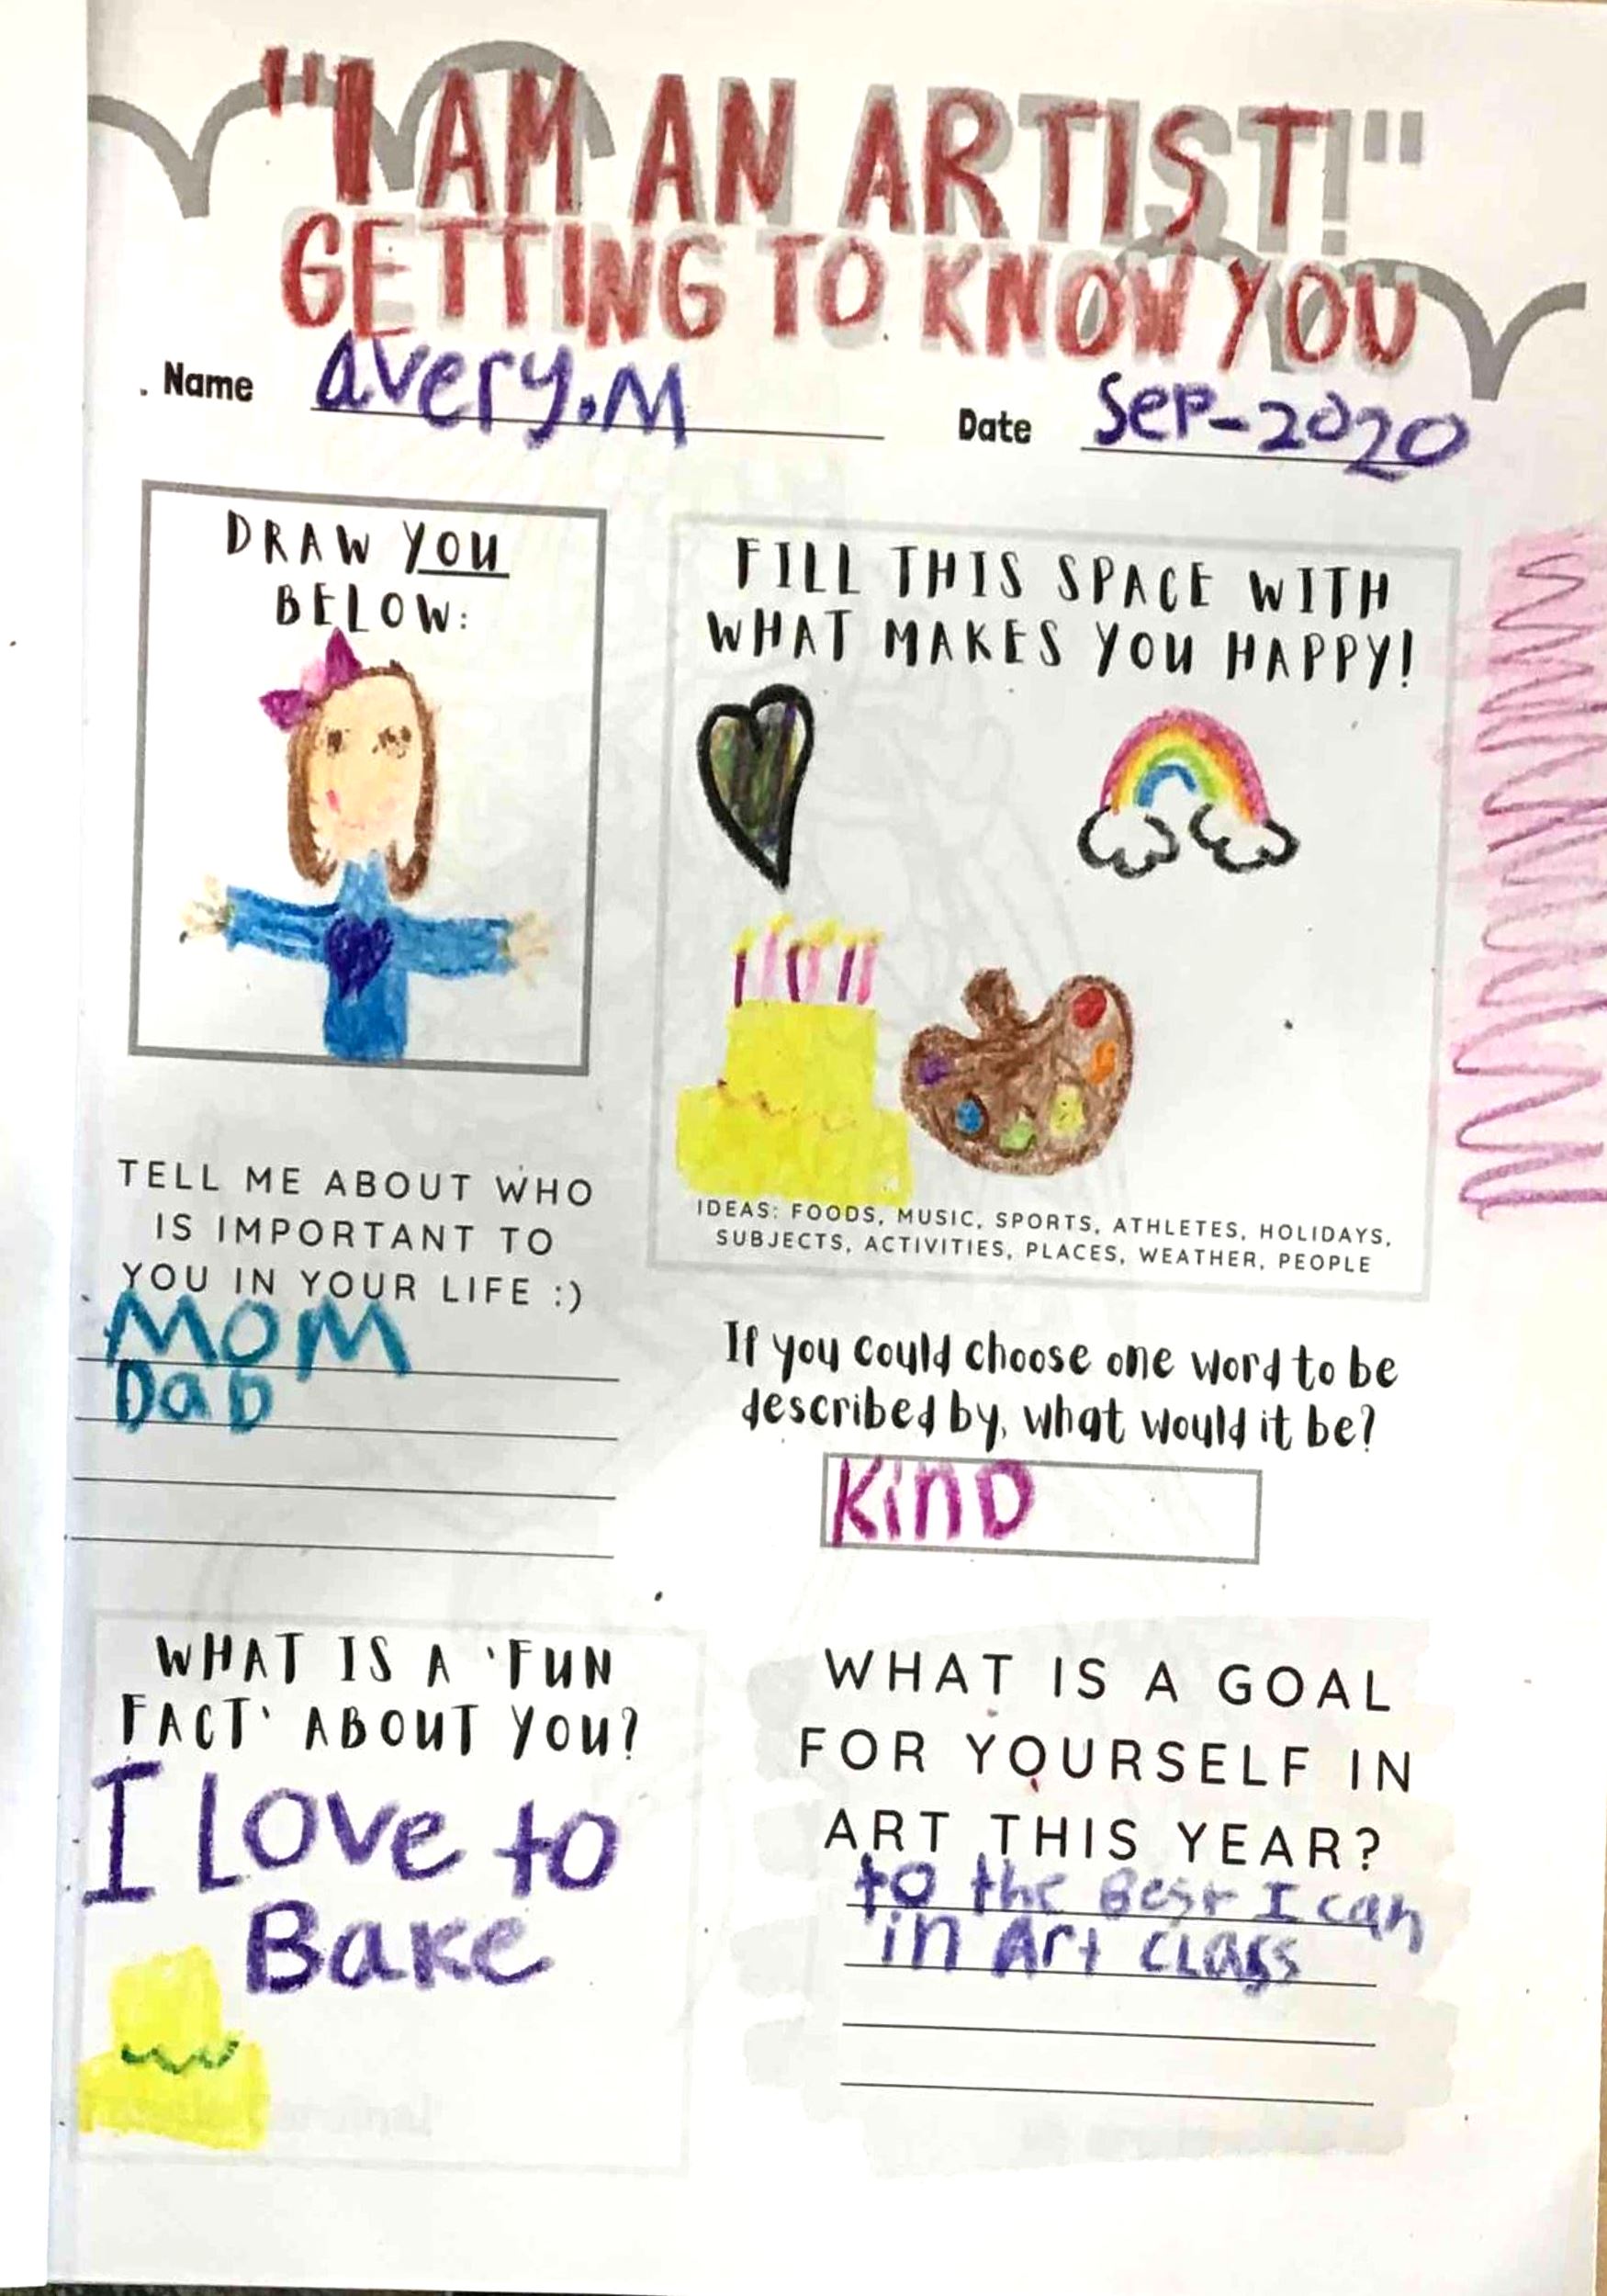 "I AM AN ARTIST!"
GETTING TO KNOW YOU
. Name Avery.M Date SEP-2020
DRAW YOU
BELOW:
FILL THIS SPACE WITH
WHAT MAKES YOU HAPPY!
IDEAS: FOODS, MUSIC, SPORTS, ATHLETES, HOLIDAYS,
SUBJECTS, ACTIVITIES, PLACES, WEATHER, PEOPLE
TELL ME ABOUT WHO
IS IMPORTANT TO
YOU IN YOUR LIFE :)
MOM
DaD
If you could choose one word to be
described by, what would it be?
KinD
WHAT IS A 'FUN
FACT' ABOUT YOU?
I LOVe to
Bake
WHAT IS A GOAL
FOR YOURSELF IN
ART THIS YEAR?
to the Best I can
in Art CLass